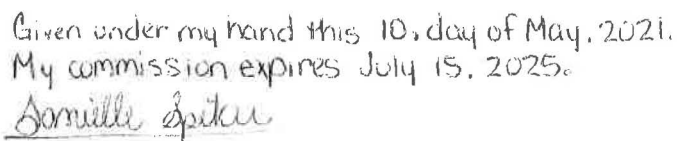 Given under my hand this 10, day of May, 2021.
My commission expires July 15, 2025.
Danielle